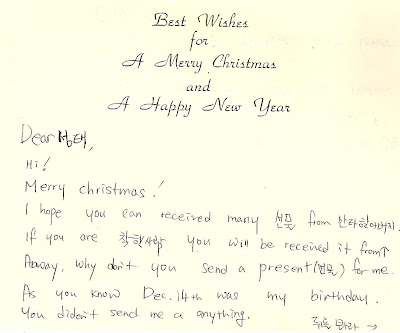 Best Wishes
for
A Merry Christmas
and
A Happy New Year
Dear 성태,
Hi!
Merry christmas!
I hope you can received many 선물 from 산타할아버지.
If you are 착한사람 you will be received it from↑
Anyway, why don't you send a present(선물) for me.
As you know Dec. 14th was my birthday.
You diden't send me a anything.
죽을 만큼 →